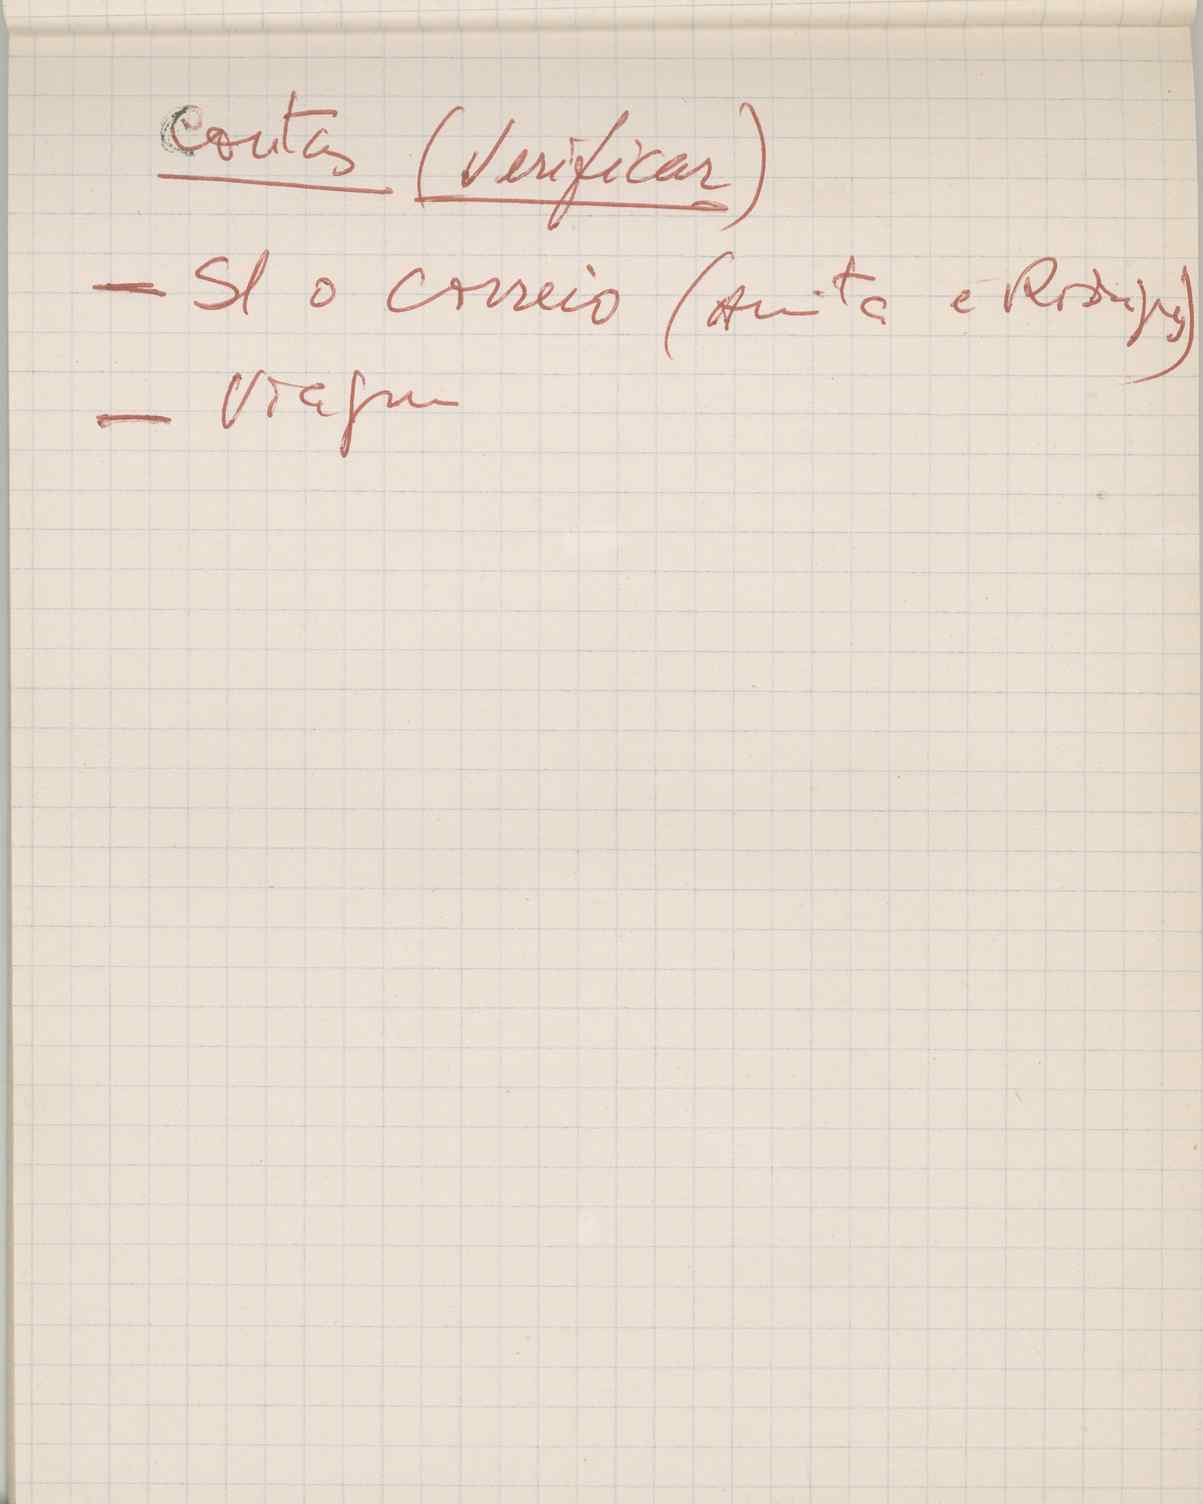 Contas (Verificar)
— Sl o correio (Anita e Rodrigues)
— Viagem